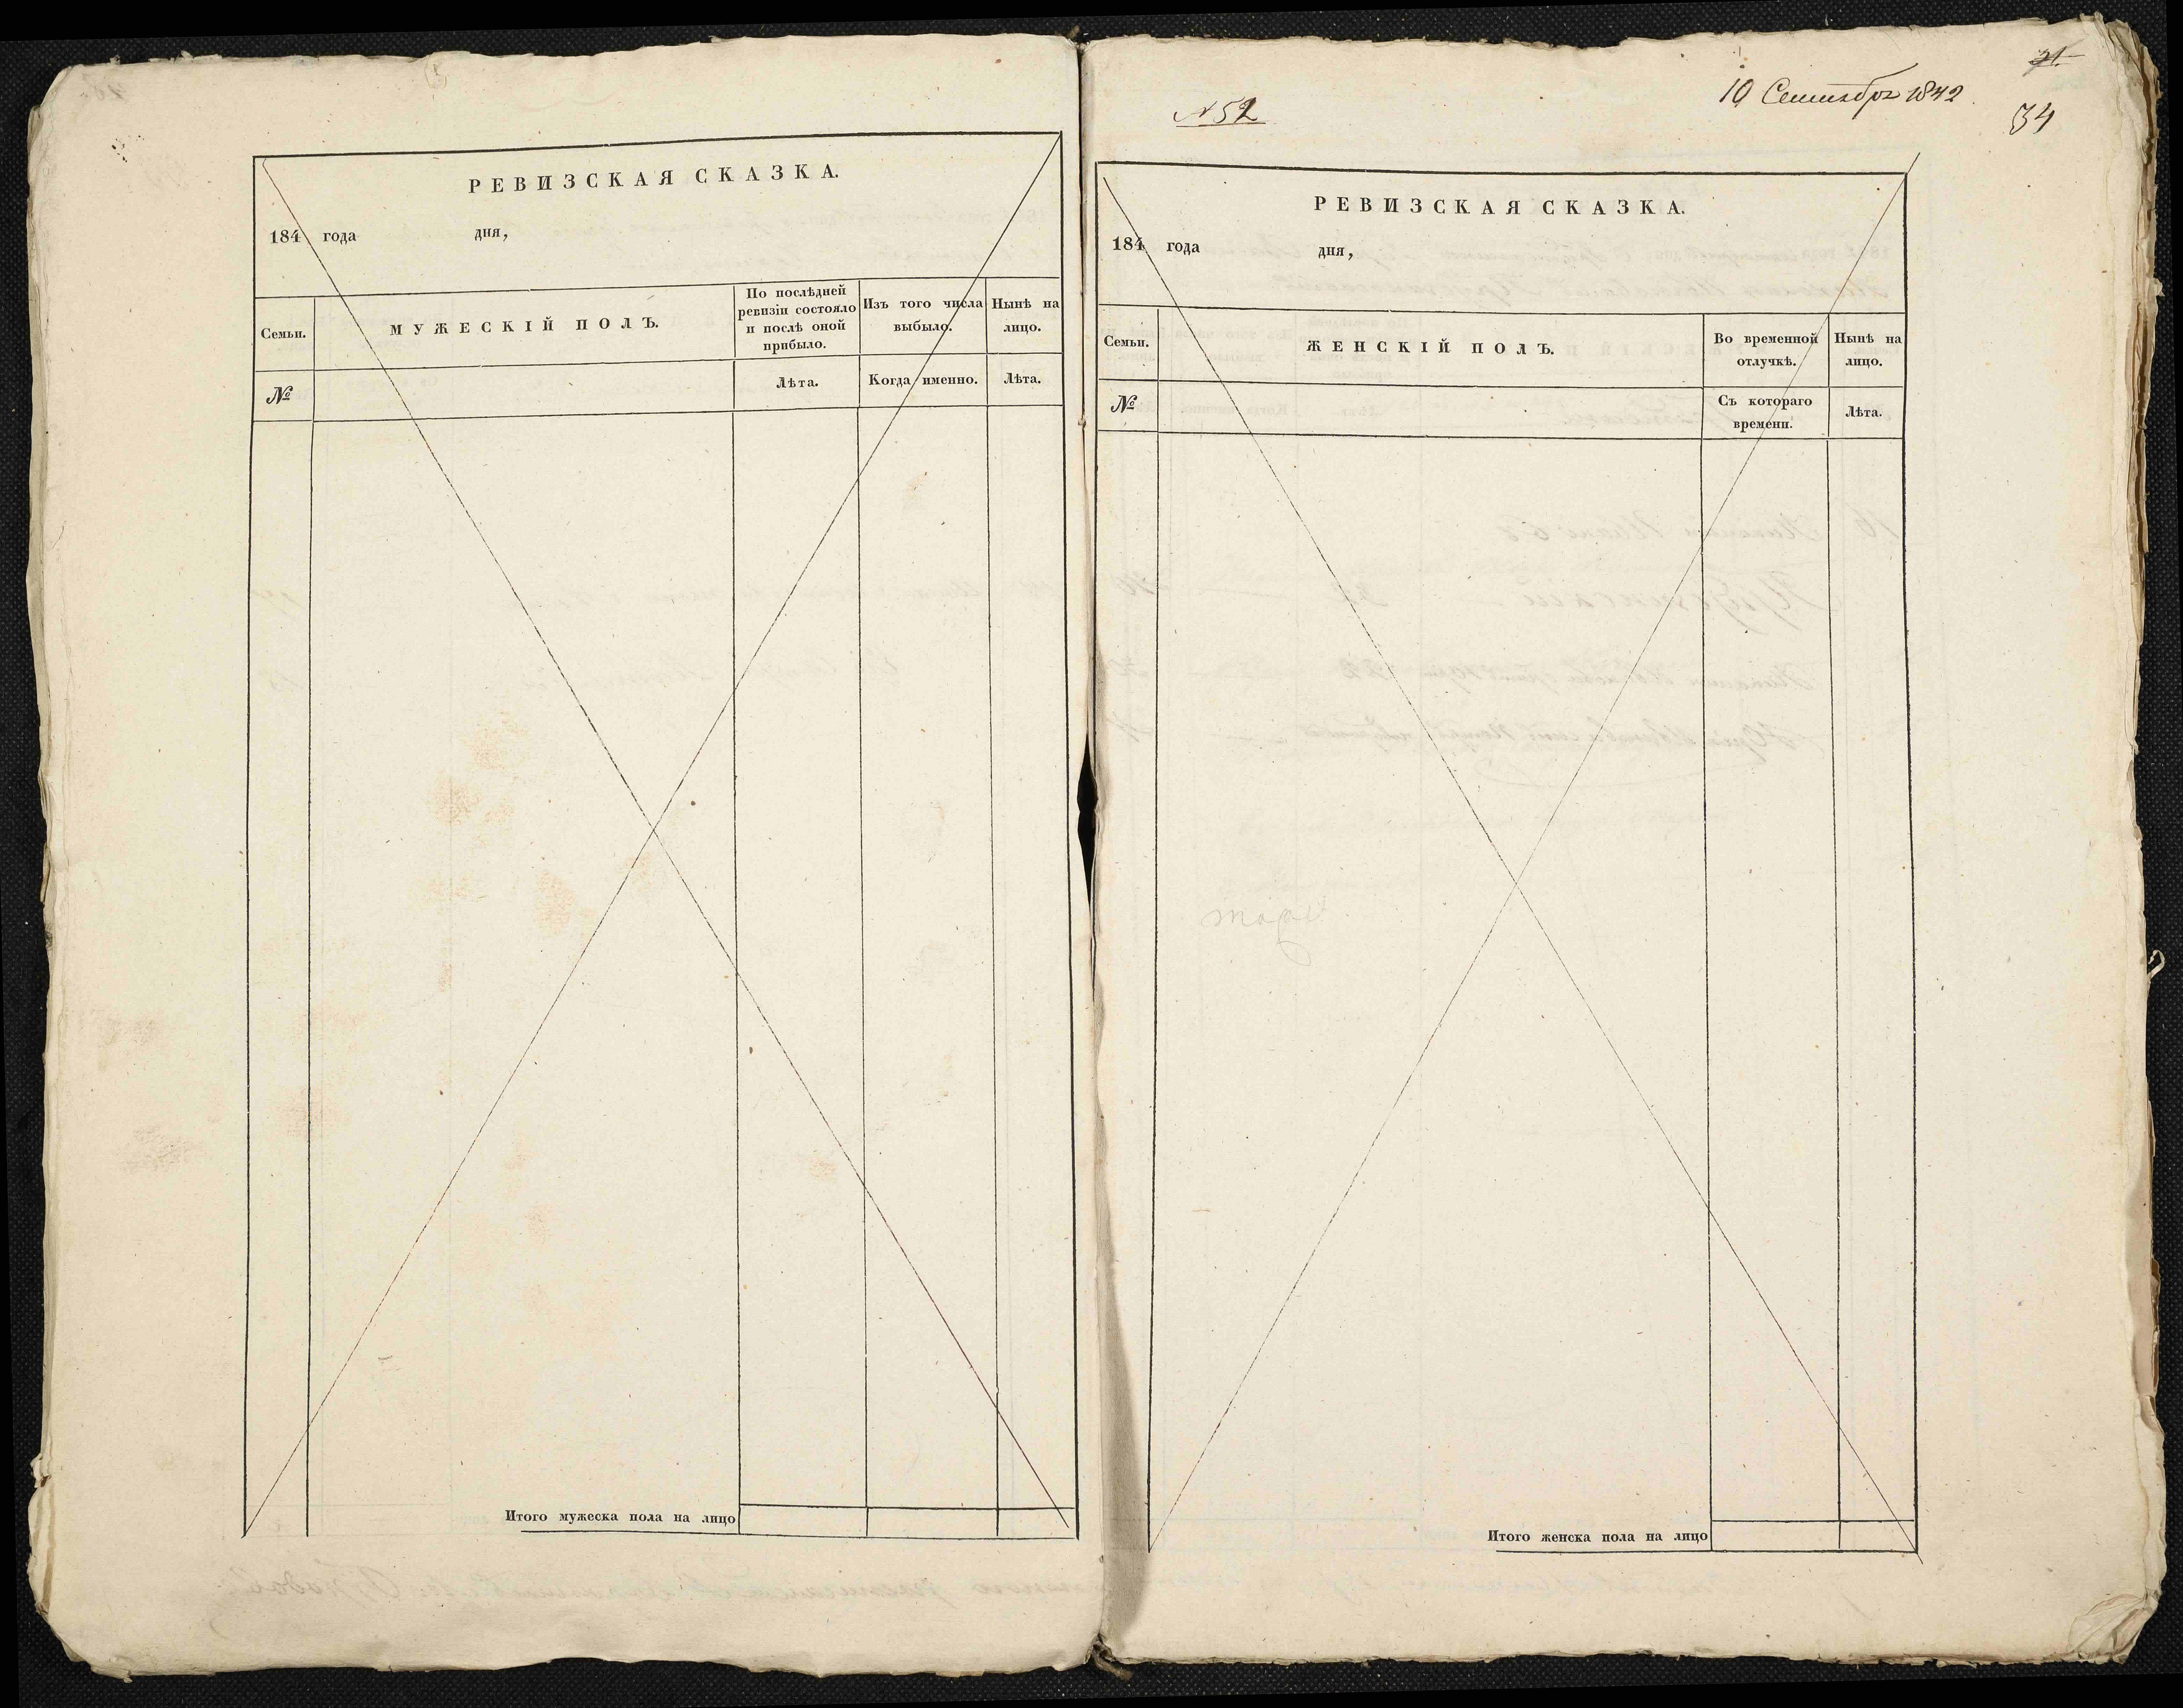 РЕВИЗСКАЯ СКАЗКА.
184 года дня,
Семьи.
МУЖЕСКІЙ ПОЛЪ.
По послѣдней ревизіи состояло и послѣ оной прибыло.
Изъ того числа выбыло.
Нынѣ на лицо.
№
Лѣта.
Когда именно.
Лѣта.
Итого мужеска пола на лицо
№ 52
10 Сентября 1842
34
РЕВИЗСКАЯ СКАЗКА.
184 года дня,
Семьи.
ЖЕНСКІЙ ПОЛЪ.
Во временной отлучкѣ.
Нынѣ на лицо.
№
Съ котораго времени.
Лѣта.
Итого женска пола на лицо